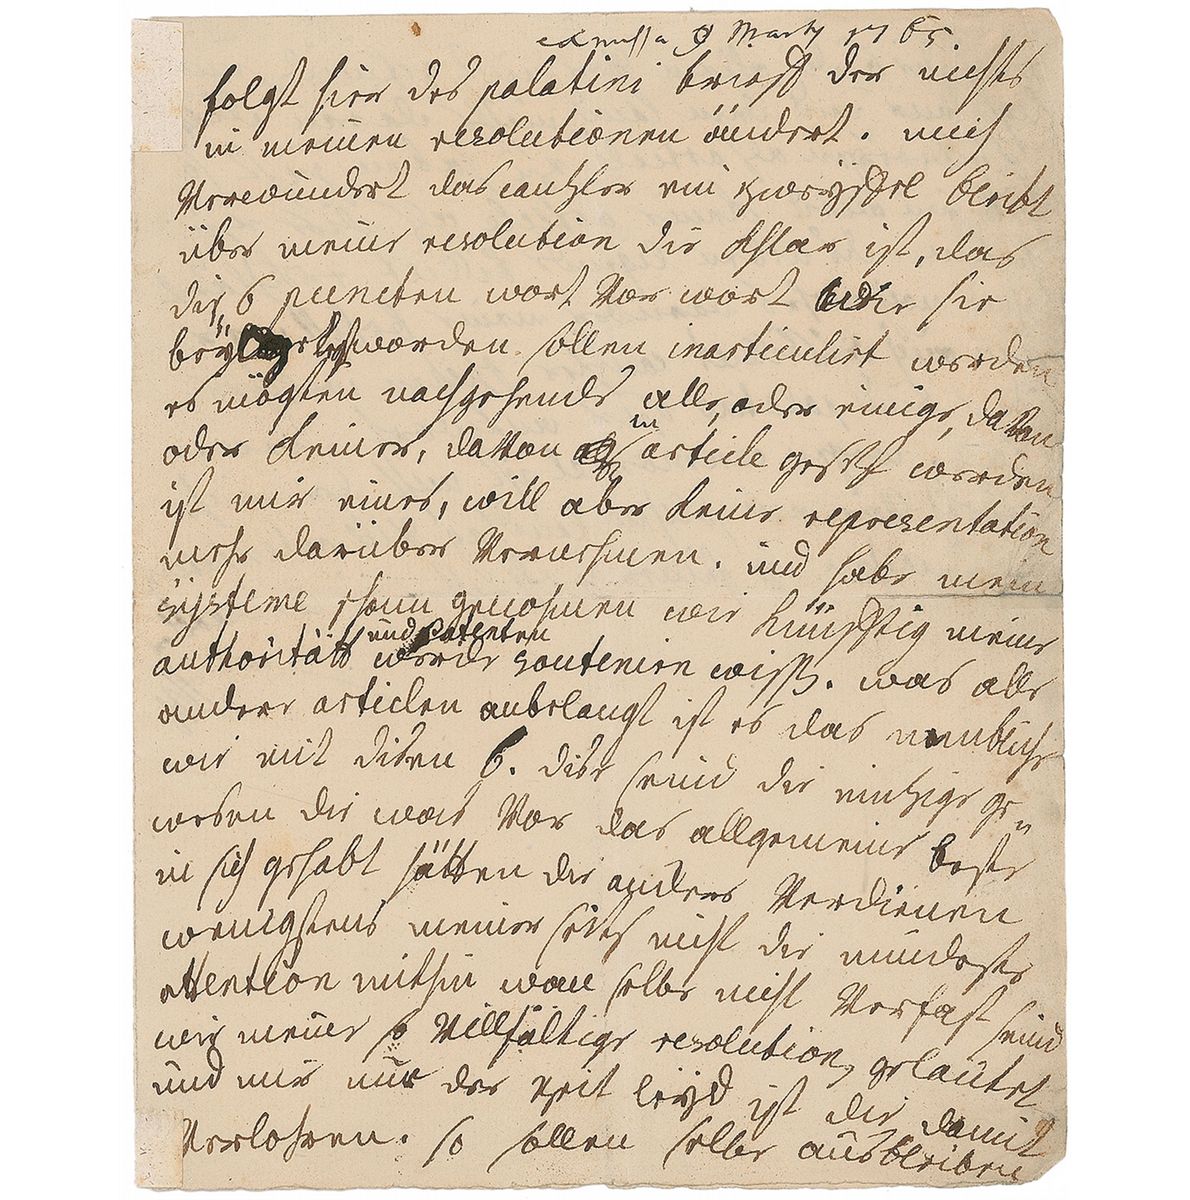 expressa 9 Marty 1765.
folgt hier des palatini brieff der nichts
in meinen resolutionen ändert. mich
Verwundert das cantzler ein zweyffel bleibt
über meine resolution die khlar ist, das
die 6 puncten wort Vor wort wie sie
worden sollen inarticulirt werden
es mögten nachgehends alle, oder einige, davon
oder keiner, davon in article gesetzt werden
ist mir eines, will aber keine representation
mehr darüber Vernehmen. und habe mein
systeme schonn genohmen wie künfftig meine
authorität und patenten werde soutenirn wissen. was alle
andere articlen anbelangt ist es das nembliche
wie mit disen 6. dise seind die eintzige ge
wesen die was Vor das allgemeine beste
in sich gehabt hätten die andere Verdienen
wenigstens meiner seits nicht die mindeste
attention mithin wan selbe nicht Verfast seind
wie meine so Villfältige resolution, gelautet
und mir nur der zeit leyd ist die damit
Verlohren. so sollen selbe ausbleiben